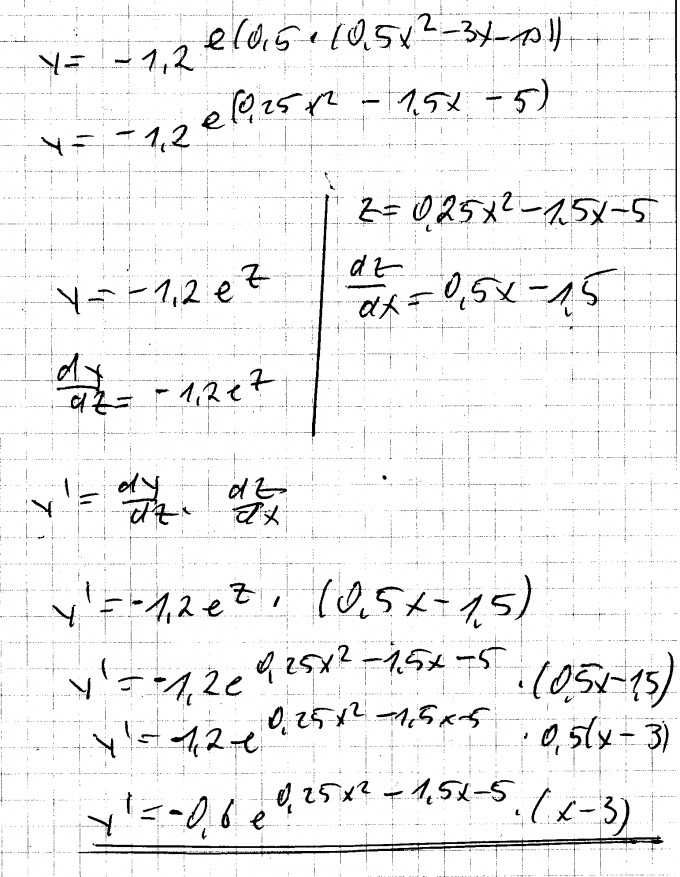 y = -1,2 e(0,5 · (0,5x² - 3x - 10))
y = -1,2 e(0,25x² - 1,5x - 5)
z = 0,25x² - 1,5x - 5
y = -1,2 e^z
dz/dx = 0,5x - 1,5
dy/dz = -1,2 e^z
y' = dy/dz · dz/dx
y' = -1,2 e^z · (0,5x - 1,5)
y' = -1,2 e^0,25x² - 1,5x - 5 · (0,5x - 1,5)
y' = -1,2 e^0,25x² - 1,5x - 5 · 0,5(x - 3)
y' = -0,6 e^0,25x² - 1,5x - 5 · (x - 3)